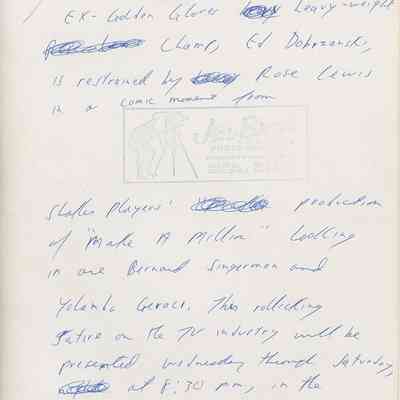 Ex-Golden Glover heavy-weight
Champ, Ed Dobrzanski,
is restrained by Rose Lewis
in a comic moment from
Shatles Players' production
of "Make A Million" Looking
in are Bernard Singerman and
Yolanda Geraci. This rollicking
satire on the TV industry will be
presented Wednesday through Saturday,
at 8:30 pm, in the